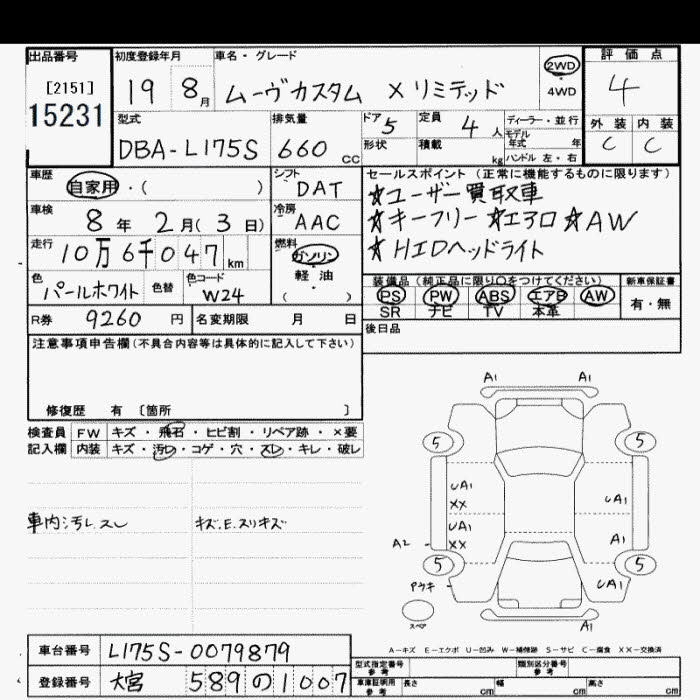 出品番号 初度登録年月 車名・グレード 評価点
[2151] 19 8月 ムーヴカスタム X リミテッド 2WD 4WD 4
15231
型式 排気量 ドア 5 定員 4 人 ディーラー・並行 外装 内装
DBA-L175S 660 CC 形状 積載 kg モデル年式 年 C C
ハンドル 左・右
車歴 自家用・( ) シフト DAT セールスポイント (正常に機能するものに限ります)
☆ユーザー買取車
車検 8年 2月(3日) 冷房 AAC ☆キーフリー ☆エアロ ☆AW
走行 10万6千047 km 燃料 ガソリン・軽油 ( ) ☆HIDヘッドライト
色 パールホワイト 色替 色コード W24 装備品 (純正品に限り○をつけてください) 新車保証書
PS PW ABS エアB AW 有・無
SR ナビ TV 本革
R券 9260 円 名変期限 月 日 後日品
注意事項申告欄(不具合内容等は具体的に記入して下さい)
修復歴 有 〔箇所 〕
検査員 FW キズ・飛石・ヒビ割・リペア跡・×要
記入欄 内装 キズ・汚レ・コゲ・穴・スレ・キレ・破レ
車内汚レ.スレ キズ.E.スリキズ
A1 A1
5 5
UA1 XX UA1
UA1 XX A1
A2
5 5
Pウキ UA1
スペア A1
A-キズ E-エクボ U-凹み W-補修跡 S-サビ C-腐食 XX-交換済
車台番号 L175S-0079879
型式指定番号 参考 類別区分番号 参考
登録番号 大宮 589の1007
車庫証明用 参考 長さ cm 幅 cm 高さ cm